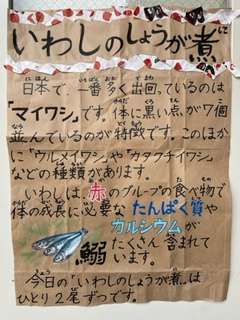 いわしのしょうが煮
日本で、一番多く出回っているのは
「マイワシ」です。体に黒い点が7個
並んでいるのが特徴です。このほか
に「ウルメイワシ」や「カタクチイワシ」
などの種類があります。
いわしは、赤のグループの食べ物で
体の成長に必要なたんぱく質や
カルシウムが
たくさん含まれて
います。
鰯
今日の「いわしのしょうが煮」は
ひとり2尾ずつです。